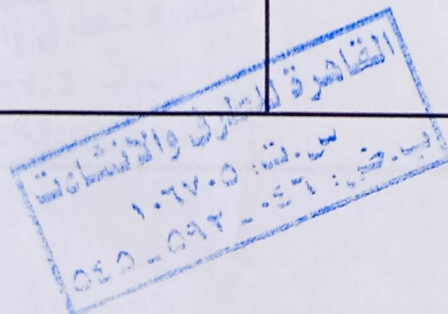 القاهرة للطرق والانشاءت
س.ت: ١٠٦٧٠٥
ب.ض: ٠٤٦ - ٥٩٢ - ٥٤٥